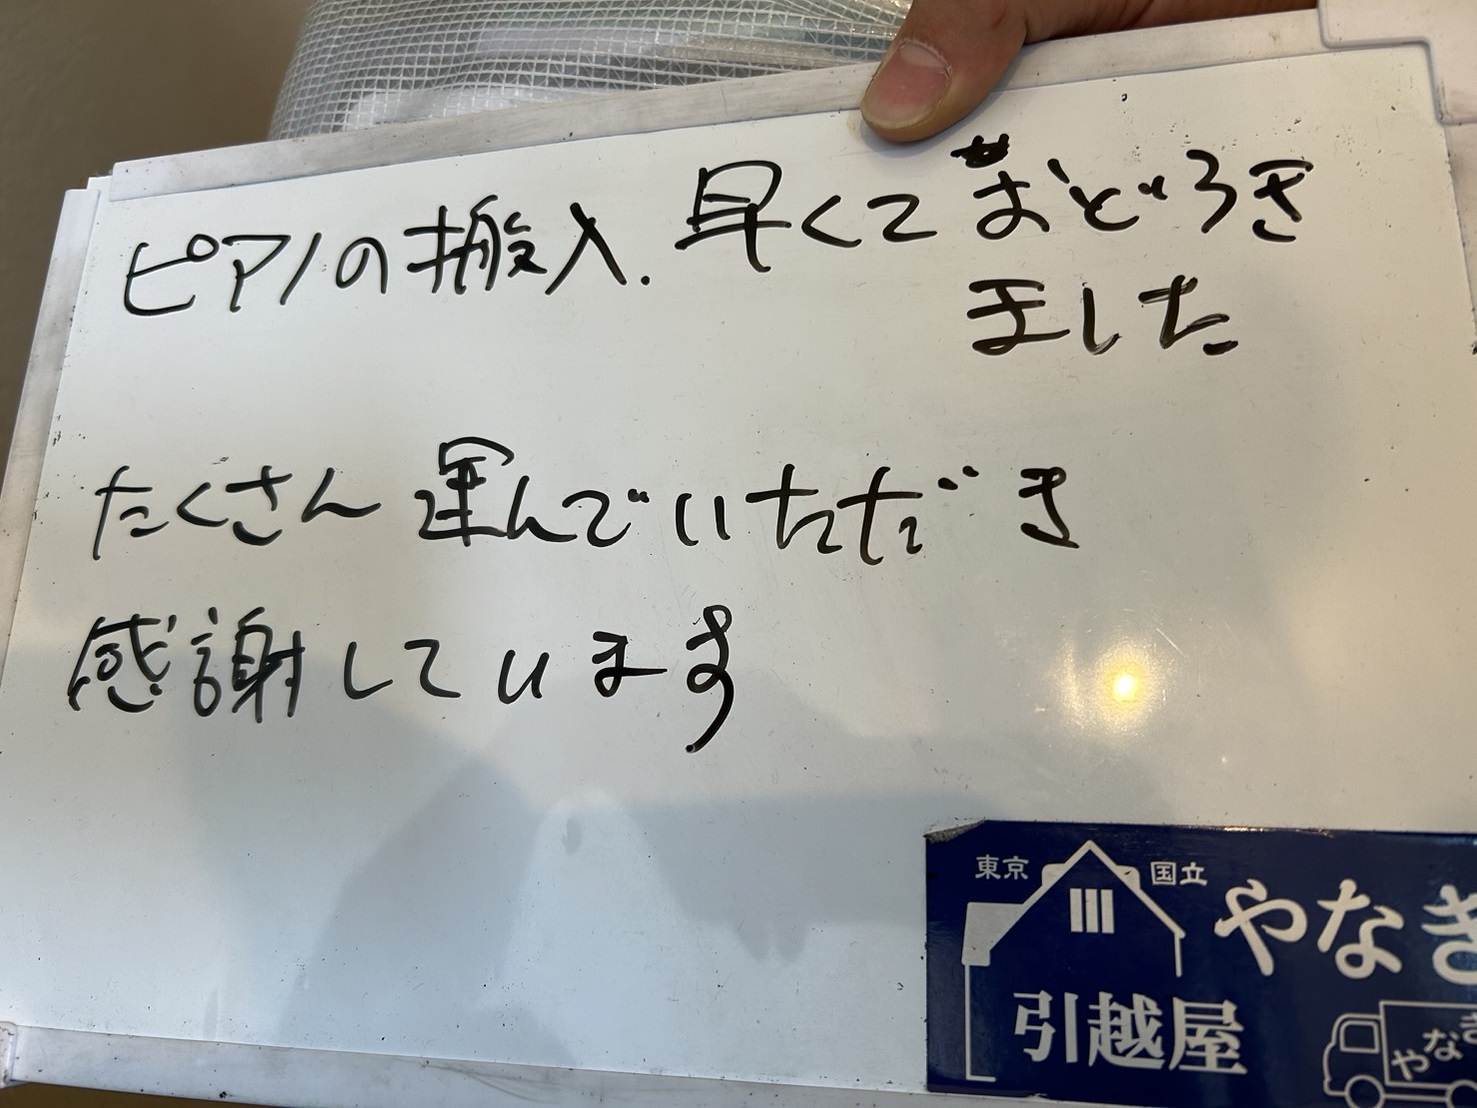 ピアノの搬入. 早くておどろき
ました
たくさん運んでいただき
感謝しています
東京 国立
やなき
引越屋
やなき